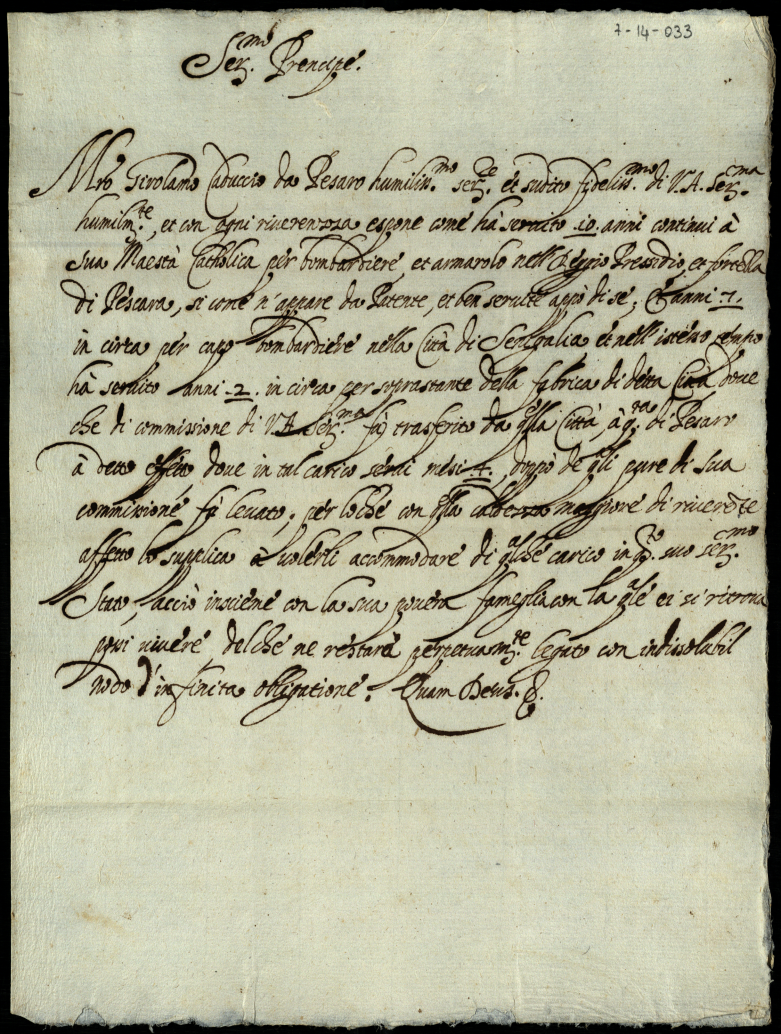 7-14-033
Ser.mo Prencipe.
Mro Girolamo Caduccio da Pesaro humiliss.mo ser.re et sudito fideliss.mo di V.A. Ser.ma
humilm.te, et con ogni riverenza espone come hà servito .10. anni continui à
sua Maestà Catholica per bombardiere, et armarolo nell Reggio Pressidio, et fortezza
di Pescara, si come n'appare da Patente, et ben servite appò di se, Et anni .7.
in circa per capo bombardiere nella Città di Senigalia et nell'istesso tempo
hà servito anni .2. in circa per soprastante della fabrica di detta Città dove
che di commissione di V.A. Ser.ma fù trasferito da qlla Città, à q.ta di Pesaro
à detto effetto dove in tal carico servì mesi .4., doppò de qli pure di sua
commissione fù levato, per loche con qlla maggiore di riverete
affetto lo supplica à volerli accommodare di qlche carico in q.to suo ser.mo
Stato, acciò insieme con la sua povera fameglia con la qle ei si ritrova
povi vivere delche ne restarà perpetuam.te legato con indissolubil
nodo d'infinita obligatione. Quam Deus. &.